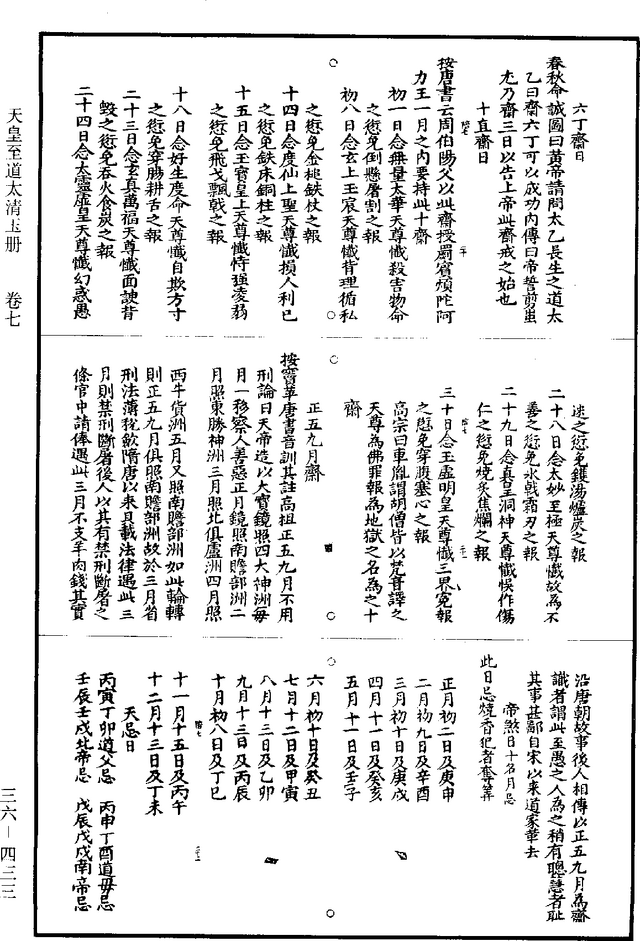 六丁齋日
春秋命誠圖曰黃帝請問太乙長生之道太
乙曰齋六丁可以成功內傳曰帝誓剪蚩
尤乃齋三日以告上帝此齋戒之始也
十直齋日
按唐書云周伯陽父以此齋授罽賓煩陀阿
力王一月之內要持此十齋
初一日念無量太華天尊懺殺害物命
之愆免倒懸屠割之報
初八日念玄上玉宸天尊懺背理循私
之愆免金槌鉄杖之報
十四日念度仙上聖天尊懺損人利已
之愆免鉄床銅柱之報
十五日念玉寶皇上天尊懺恃强凌弱
之愆免飛戈飄戟之報
十八日念好生度命天尊懺自欺方寸
之愆免穿膓耕舌之報
二十三日念玄真萬福天尊懺面諛背
毀之愆免吞火食炭之報
二十四日念太靈虛皇天尊懺幻惑愚
迷之愆免鑊湯爐炭之報
二十八日念太妙至極天尊懺故為不
善之愆免氷戟霜刃之報
二十九日念真皇洞神天尊懺悞作傷
仁之愆免燒炙焦爛之報
三十日念玉虛明皇天尊懺三界冤報
之愆免穿腹塞心之報
高宗曰車胤謂胡僧皆以梵音譯之
天尊為佛罪報為地獄之名為之十
齋
正五九月齋
按竇苹唐書音訓其註高祖正五九月不用
刑論曰天帝造以大寶鏡照四大神洲每
月一移察人善惡正月鏡照南贍部洲二
月照東勝神洲三月照北俱盧洲四月照
西牛貨洲五月又照南贍部洲如此輪轉
則正五九月俱照南贍部洲故於三月省
刑法蕭稅斂隋唐以來頁載法律遇此三
月則禁刑斷屠後人以其有禁刑斷屠之
條官中請俸遇此三月不支羊肉錢其實
沿唐朝故事後人相傳以正五九月為齋
識者謂此至愚之人為之稍有聰慧者耻
其事甚鄙自宋以來道家華去
帝煞日十名月忌
此日忌燒香犯者奪筭
正月初二日及庚申
二月初九日及辛酉
三月初十日及庚戌
四月十一日及癸亥
五月十一日及壬子
六月初十日及癸丑
七月十二日及甲寅
八月十三日及乙卯
九月十三日及丙辰
十月初八日及丁巳
十一月十五日及丙午
十二月十三日及丁未
天忌日
丙寅丁卯道父忌　丙申丁酉道毋忌
壬辰壬戌北帝忌　戊辰戊戌南帝忌
天皇至道太清玉册　卷七
三六－四三三